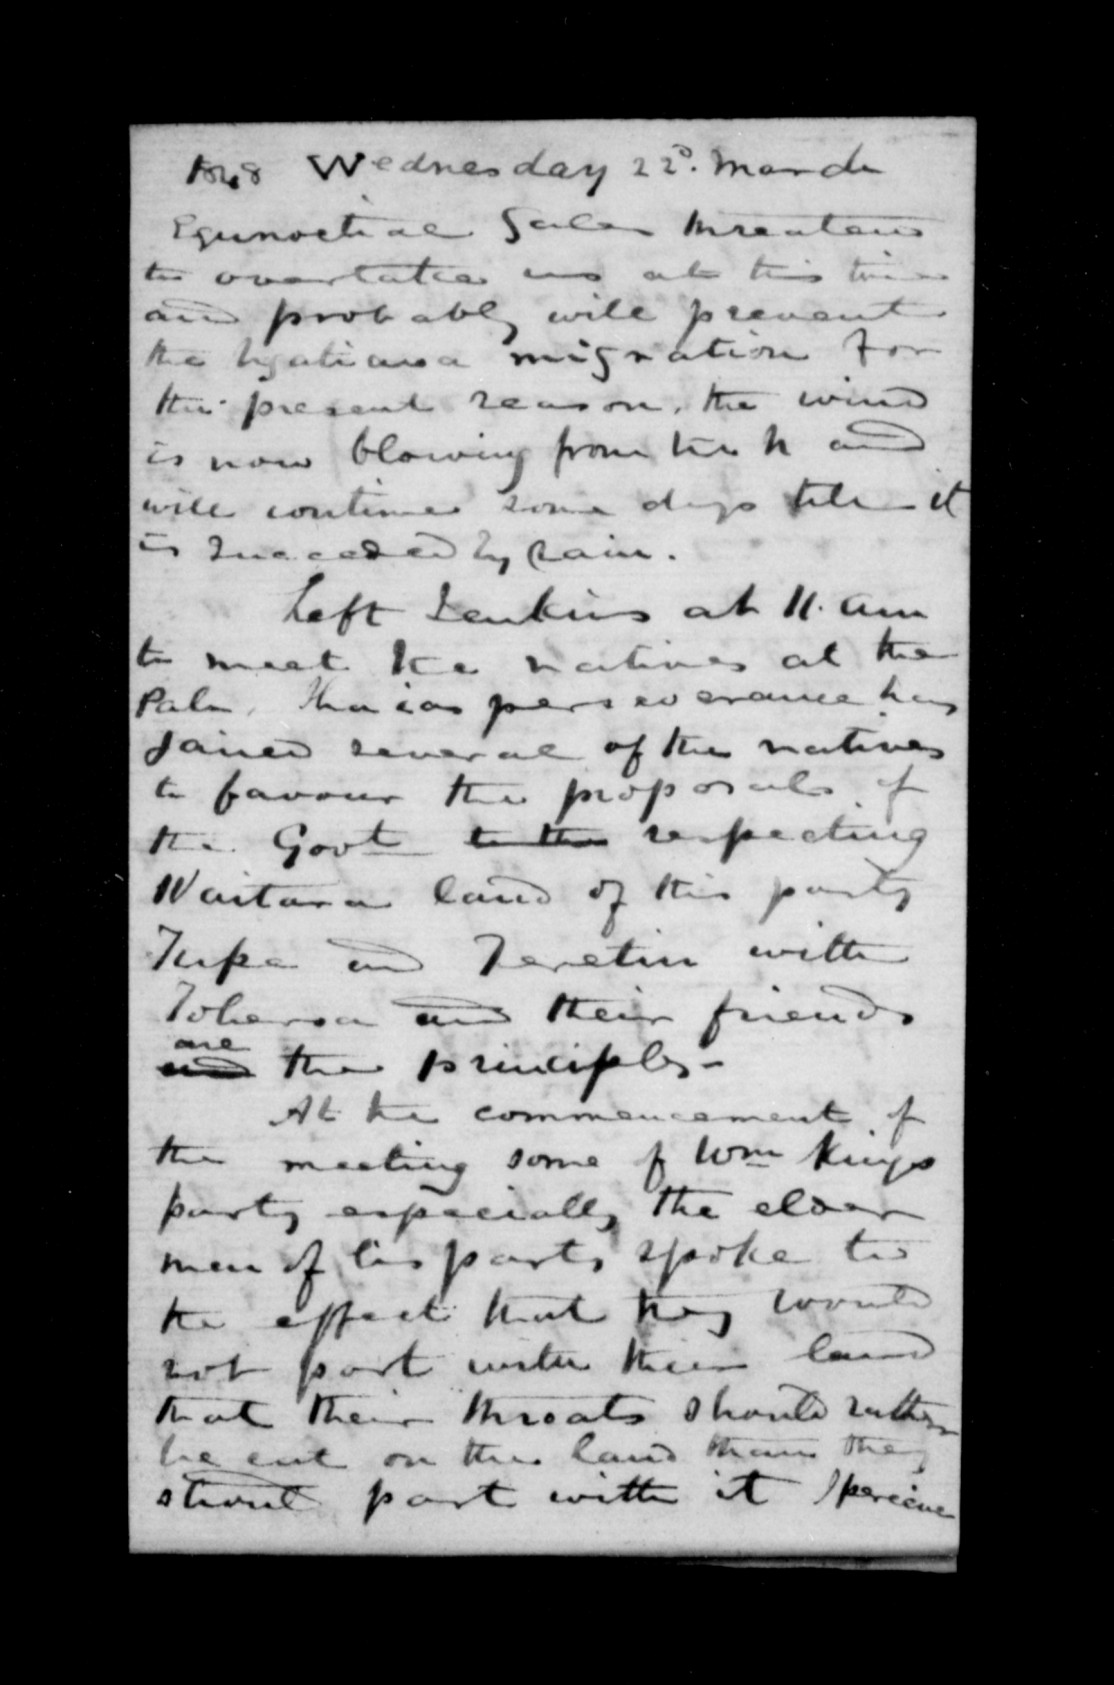 1848 Wednesday 22d. March
Equnoctial Gales threatens
to overtake us at this time
and probably will prevent
the Ngatiawa migration for
this present season, the wind
is now blowing from the N and
will continue some days till it
is succeeded by rain.
Left Jenkins at 11. am
to meet the natives at the
Pah, perseverance has
gained several of the natives
to favour the proposals of
the Govt to the respecting
Waitara land of this party
and with
and their friends
are
and the principles -
At the commencement of
the meeting some of Wm Kings
party especially the elder
men of his party spoke to
the effect that they would
not part with their land
that their throats should rather
be cut on the land than they
should part with it I perceive